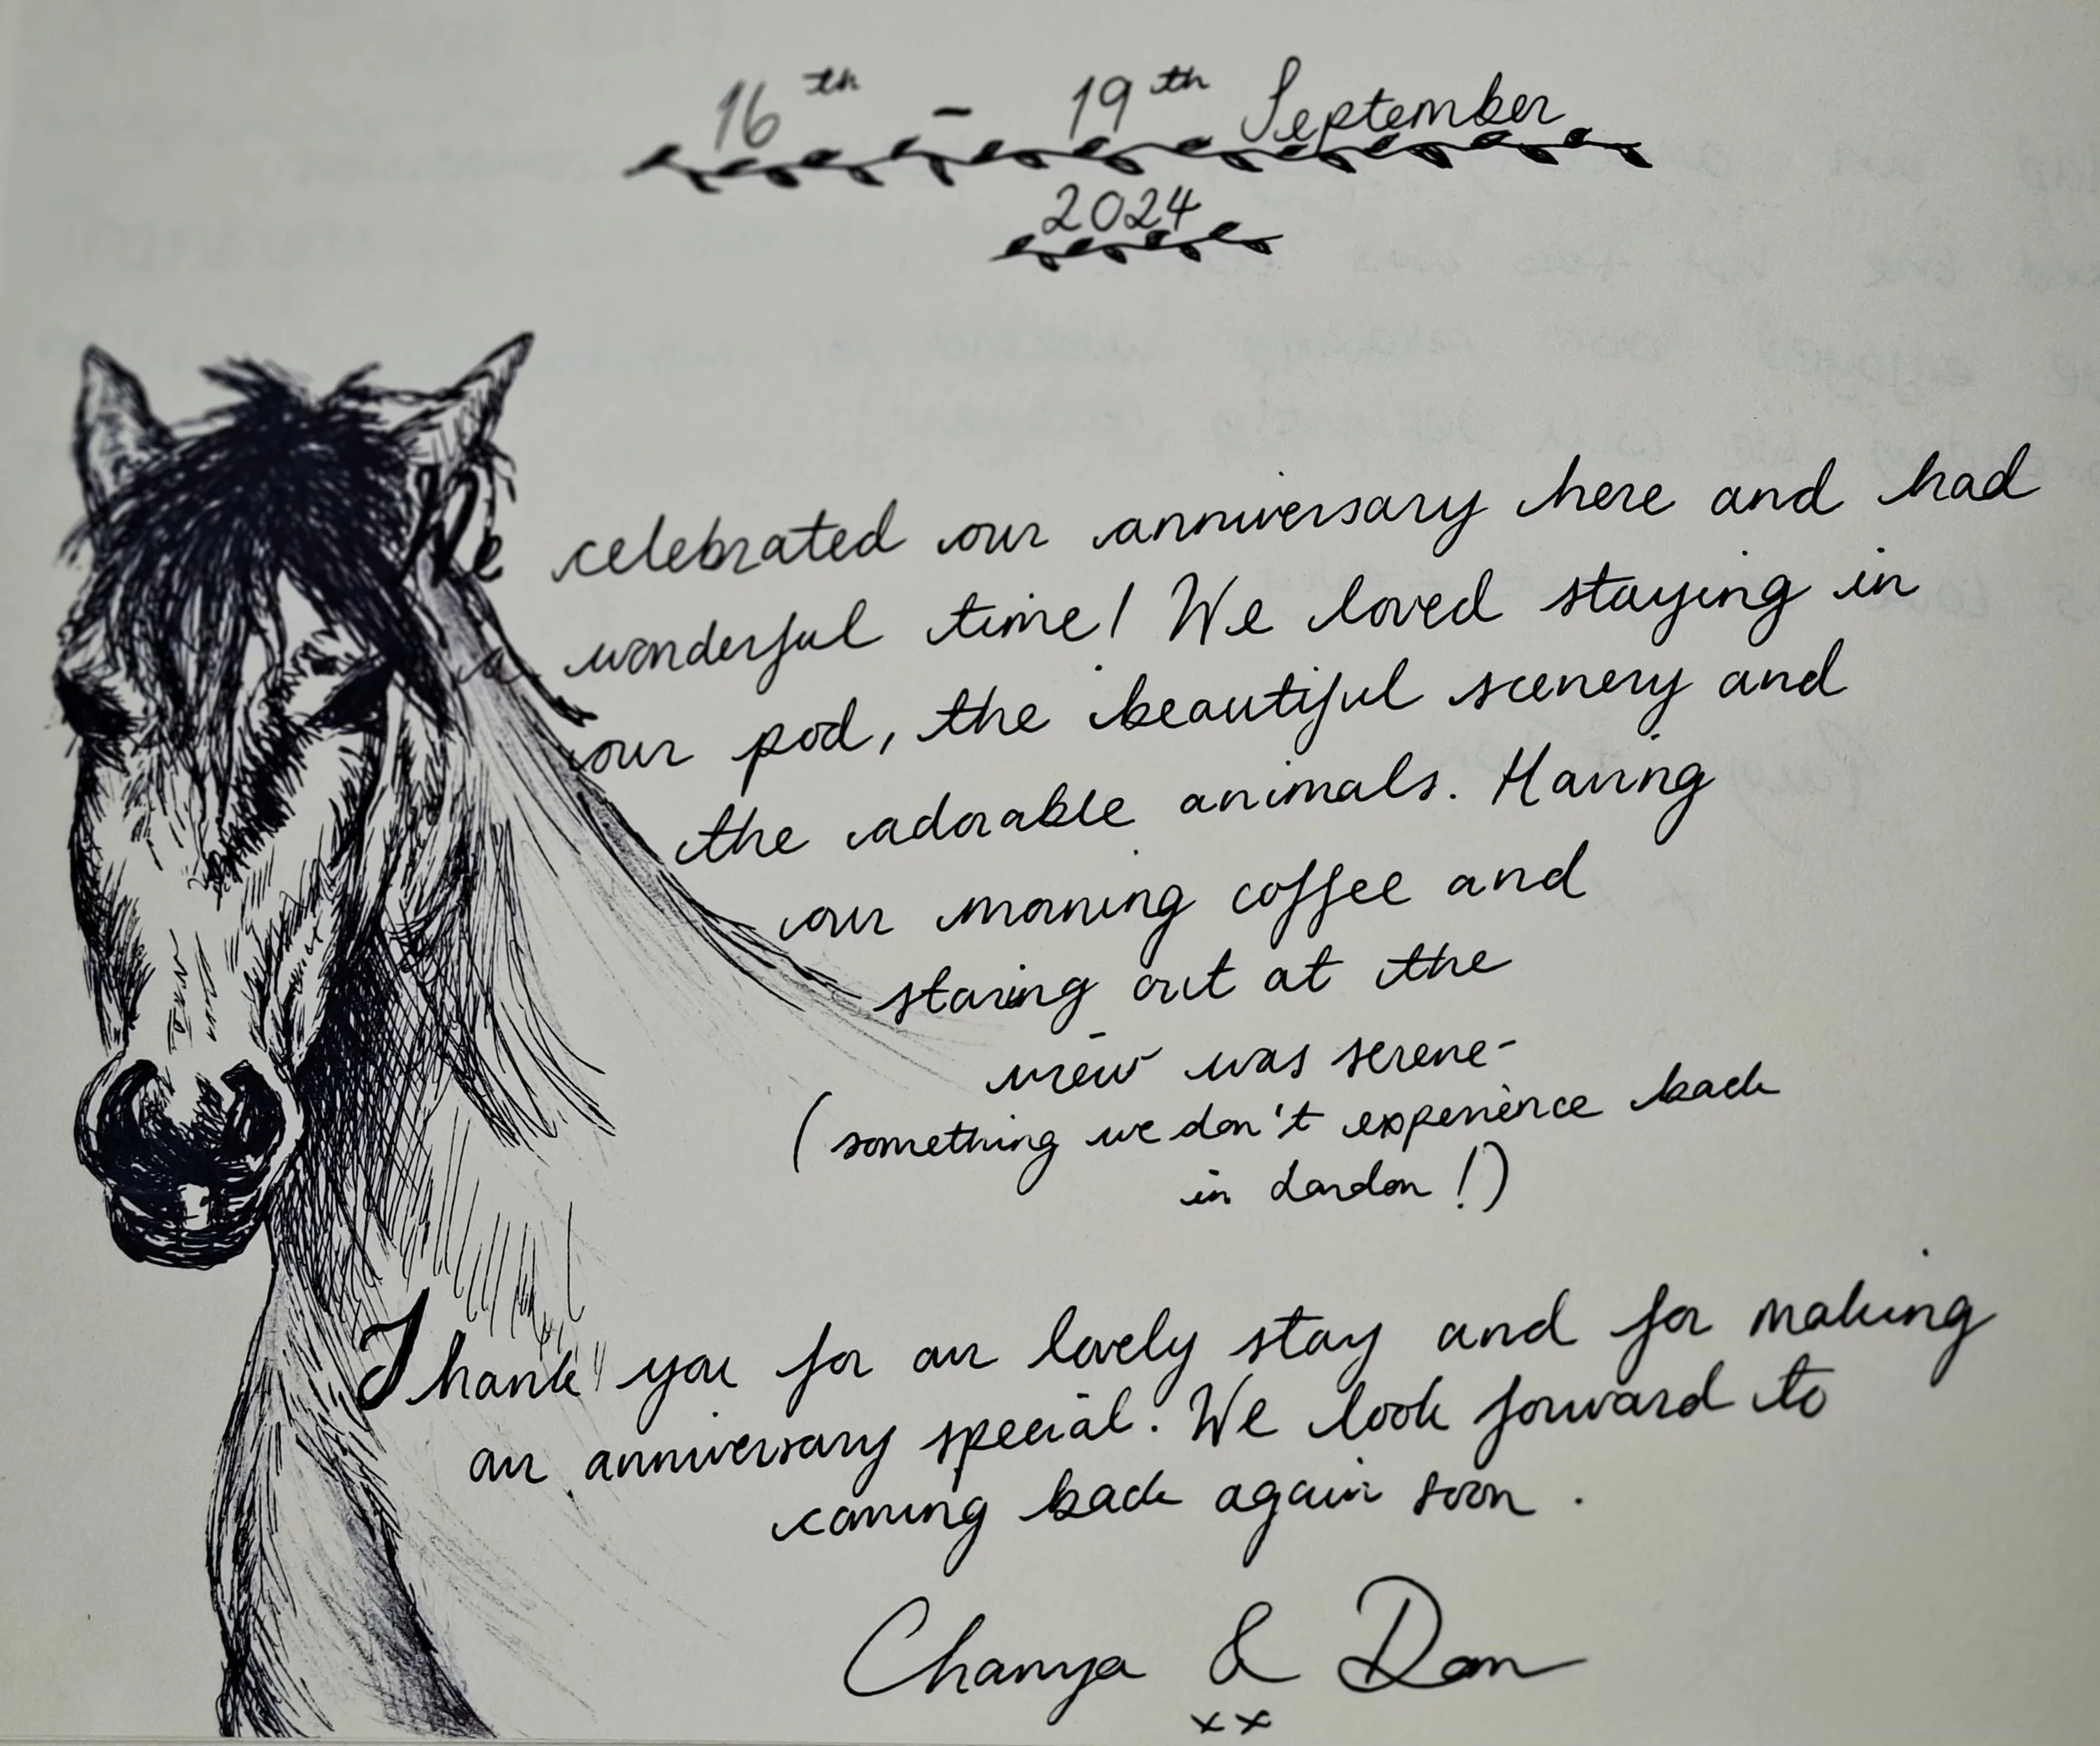 16th - 19th September
2024
We celebrated our anniversary here and had
a wonderful time! We loved staying in
our pod, the beautiful scenery and
the adorable animals. Having
our morning coffee and
staring out at the
view was serene-
(something we don't experience back
in London!)
Thank you for our lovely stay and for making
our anniversary special. We look forward to
coming back again soon.
Chanya & Dan
xx